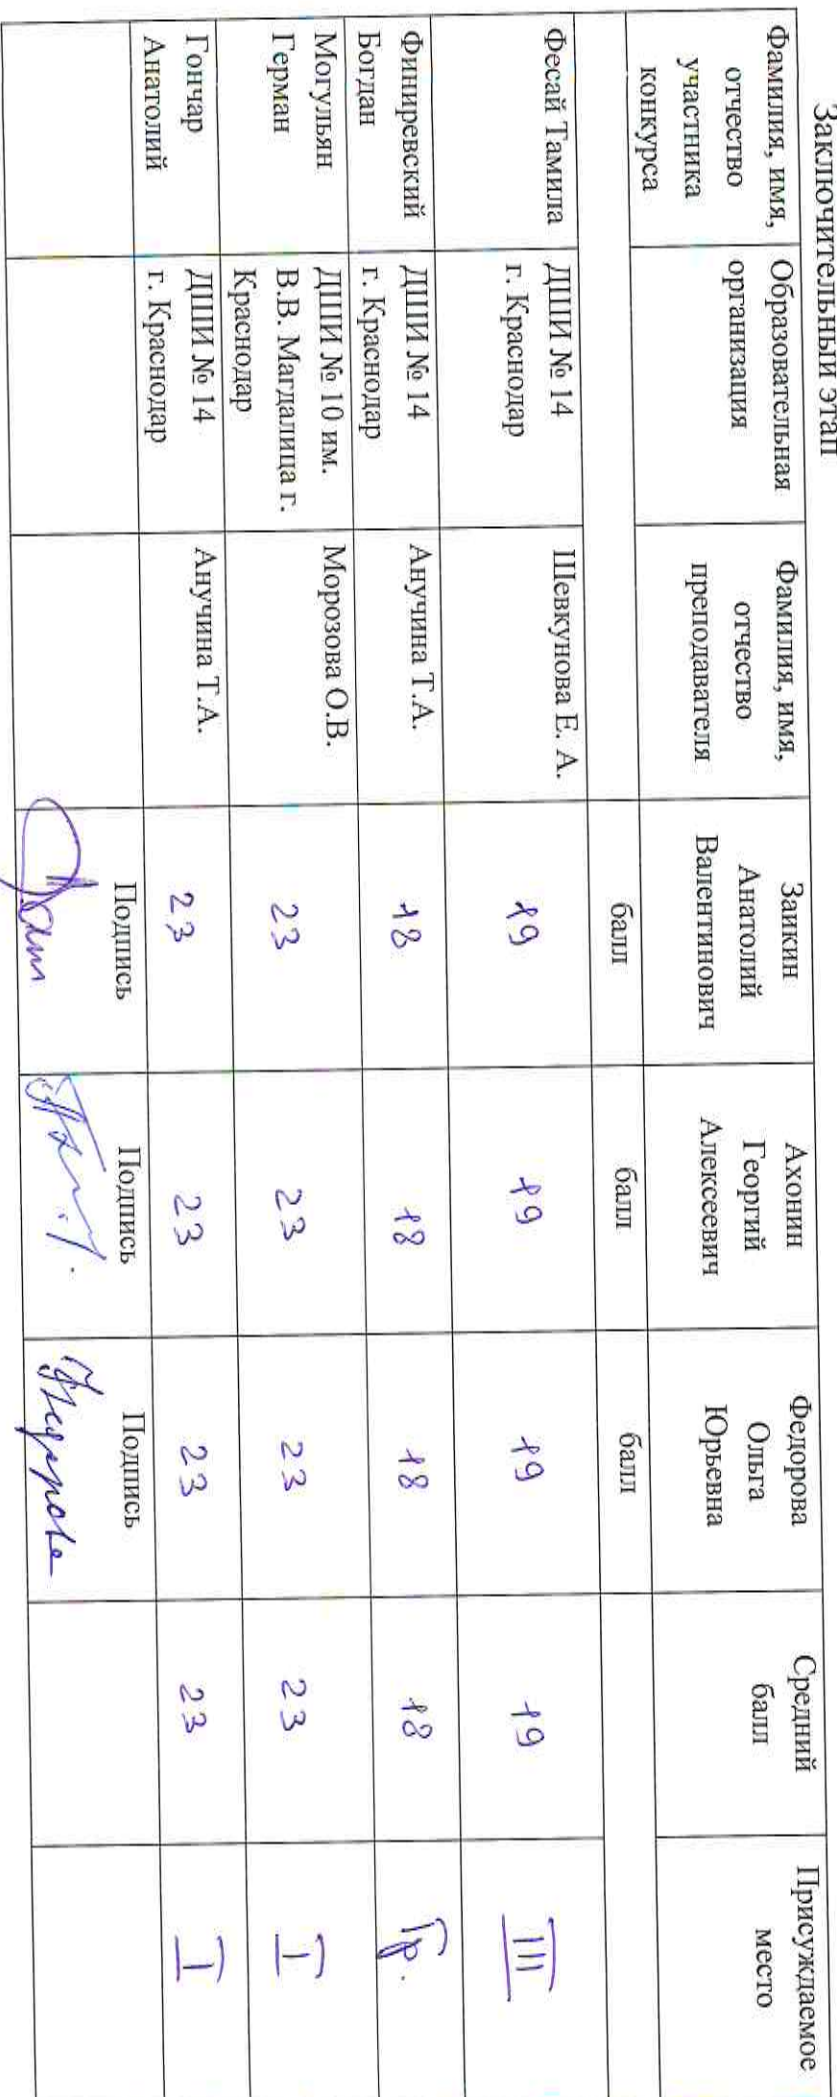 Заключительный этап
Фамилия, имя,
отчество
участника
конкурса
Образовательная
организация
Фамилия, имя,
отчество
преподавателя
Заикин
Анатолий
Валентинович
Ахонин
Георгий
Алексеевич
Федорова
Ольга
Юрьевна
Средний
балл
Присуждаемое
место
балл
балл
балл
Фесай Тамила
ДШИ № 14
г. Краснодар
Шевкунова Е. А.
19
19
19
19
III
Финиревский
Богдан
ДШИ № 14
г. Краснодар
Анучина Т.А.
18
18
18
18
Гр.
Могульян
Герман
ДШИ № 10 им.
В.В. Магдалица г.
Краснодар
Морозова О.В.
23
23
23
23
I
Гончар
Анатолий
ДШИ № 14
г. Краснодар
Анучина Т.А.
23
23
23
23
I
Подпись
Подпись
Подпись